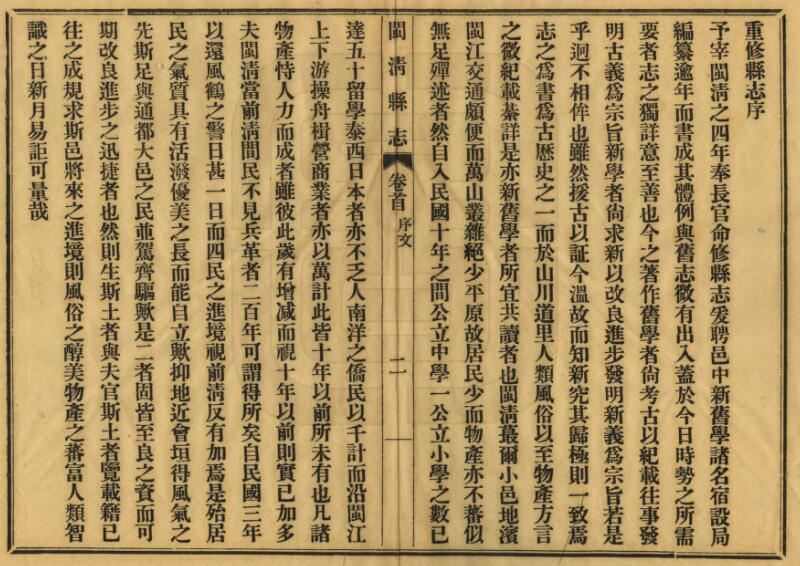 重修縣志序
予宰閩清之四年奉長官命修縣志爰聘邑中新舊學諸名宿設局
編纂逾年而書成其體例與舊志微有出入蓋於今日時勢之所需
要者志之獨詳意至善也今之著作舊學者尙考古以紀載往事發
明古義爲宗旨新學者尙求新以改良進步發明新義爲宗旨若是
乎迥不相侔也雖然援古以証今溫故而知新究其歸極則一致焉
志之爲書爲古歷史之一而於山川道里人類風俗以至物產方言
之微紀載綦詳是亦新舊學者所宜共讀者也閩清蕞爾小邑地濱
閩江交通頗便而萬山叢雜絕少平原故居民少而物產亦不蕃似
無足殫述者然自入民國十年之間公立中學一公立小學之數已
閩清縣志
卷首
序文
二
達五十留學泰西日本者亦不乏人南洋之僑民以千計而沿閩江
上下游操舟楫營商業者亦以萬計此皆十年以前所未有也凡諸
物產恃人力而成者雖彼此歲有增減而視十年以前則實已加多
夫閩清當前淸間民不見兵革者二百年可謂得所矣自民國三年
以還風鶴之警日甚一日而四民之進境視前淸反有加焉是殆居
民之氣質具有活潑優美之長而能自立歟抑地近會垣得風氣之
先斯足與通都大邑之民並駕齊驅歟是二者固皆至良之資而可
期改良進步之迅捷者也然則生斯土者與夫官斯土者覽載籍已
往之成規求斯邑將來之進境則風俗之醇美物產之蕃富人類智
識之日新月易詎可量哉